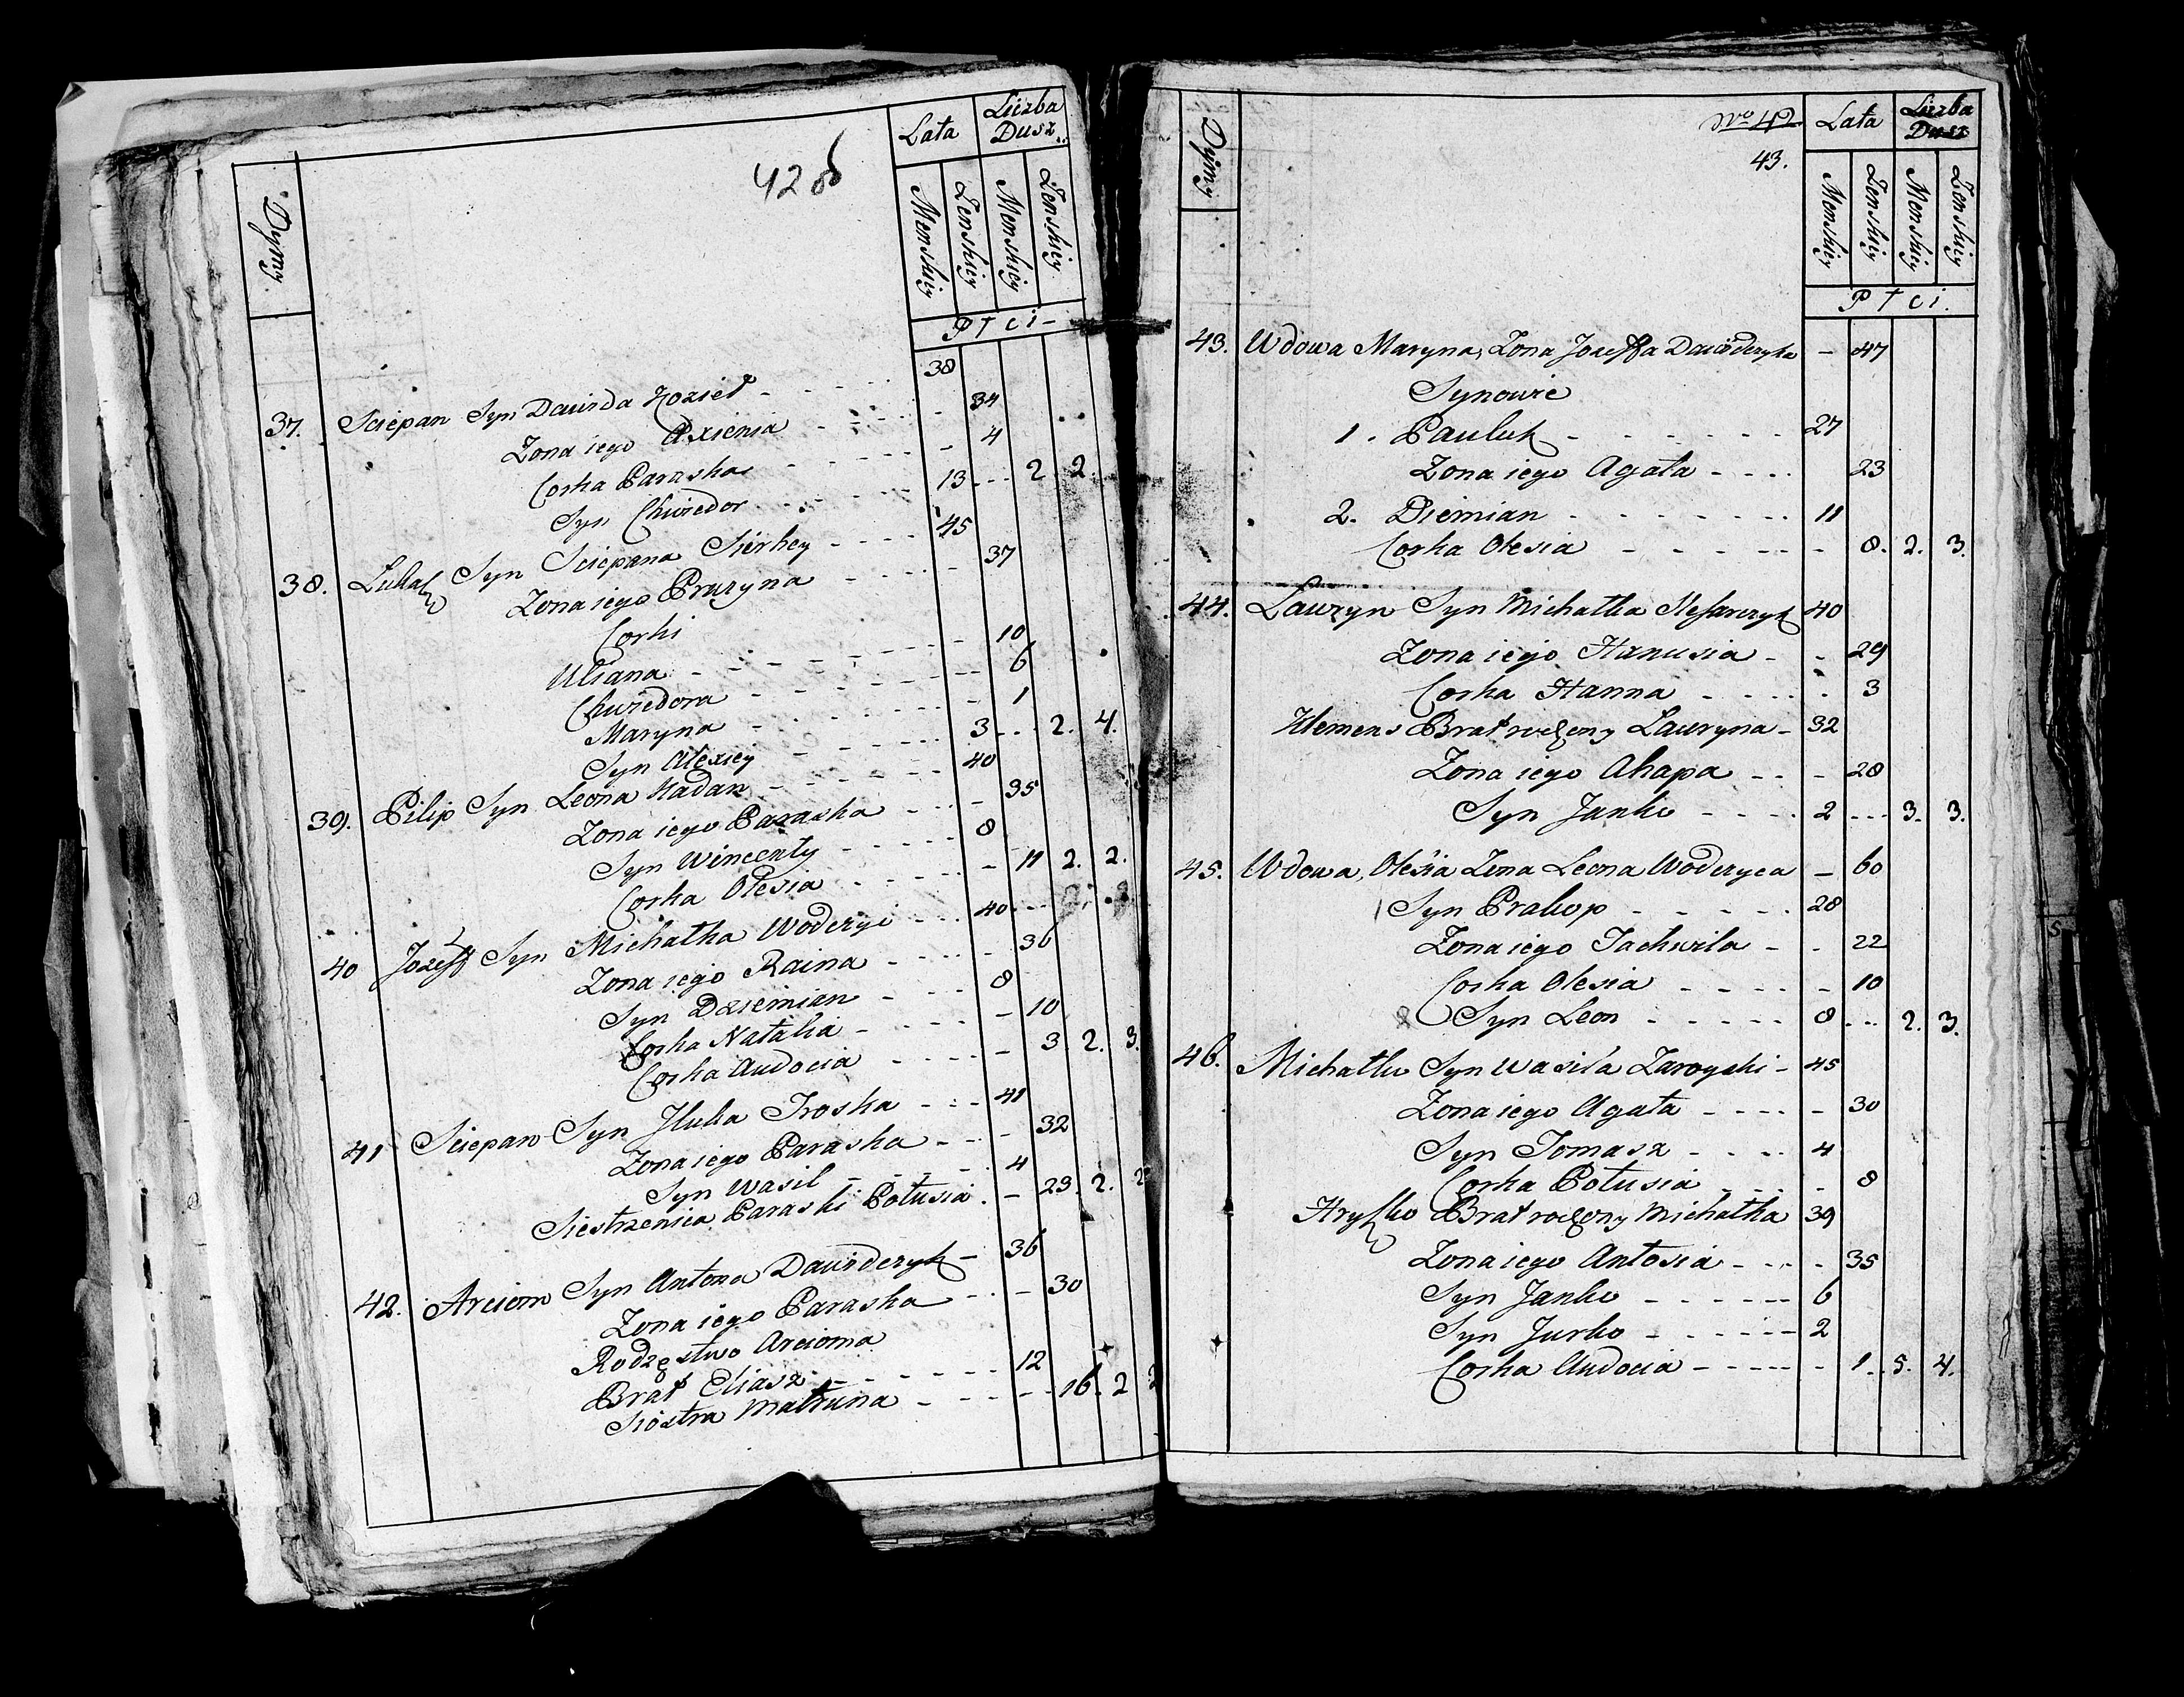 42 об
Dymy
Lata
Liczba Dusz
Menskiey
Żenskiey
Menskiey
Żenskiey
Płci
37. Sciepan Syn Dawida Kozieł - 38
Żona iego Axienia - 34
Corka Paraska - 4
Syn Chwiedor - 13 - 2 2.
38. Łukasz Syn Sciepana Sierhey - 45
Żona iego Pruzyna - 37
Corki
Uliana - 10
Chwiedora - 6
Maryna - 1
Syn Alexiey - 3 - 2. 4.
39. Pilip Syn Leona Kadan - 40
Żona iego Paraska - 35
Syn Wincenty - 8
Corka Olesia - 11 2. 2.
40 Jozeff Syn Michałka Woderyc - 40
Żona iego Raina - 36
Syn Dziemian - 8
Corka Natalia - 10
Corka Audocia - 3 2. 3.
41 Sciepan Syn Jluka Troska - 41
Żona iego Paraska - 32
Syn Wasil - 4
Siestrzenica Paraski Połusia - 23. 2. 2
42. Arciom Syn Antona Dawideryk - 36
Żona iego Paraska - 30
Rodzęstwo Arcioma
Brat Eliasz - 12
Siostra Matruna - 16. 2 2
Dymy
No 42
43.
Lata
Liczba Dusz
Menskiey
Żenskiey
Menskiey
Żenskiey
Płci.
43. Wdowa Maryna, Żona Jozeffa Dawideryka - 47
Synowie
1. Pauluk - 27
Żona iego Agata - 23
2. Diemian - 11
Corka Olesia - 8. 2. 3.
44. Ławryn Syn Michałka 40
Żona iego Hanusia - 29
Corka Hanna - 3
Klemens Brat rodzony Ławryna - 32
Żona iego Ahapa - 28
Syn Janko - 2 - 3. 3.
45. Wdowa, Olesia Żona Leona Woderyca - 60
Syn Prakop - 28
Żona iego Tachwila - 22
Corka Olesia - 10
Syn Leon - 8 - 2. 3.
46. Michałko Syn Wasila Zaroyski - 45
Żona iego Agata - 30
Syn Tomasz - 4
Corka Połusia - 8
Hryszko Brat rodzony Michałka 39
Żona iego Antosia - 35
Syn Janko - 6
Syn Jurko - 2
Corka Audocia - 1. 5. 4.